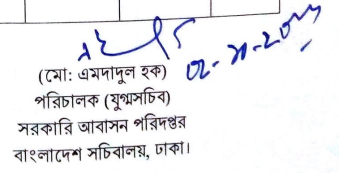 (মো: এমদাদুল হক)
পরিচালক (যুগ্মসচিব)
সরকারি আবাসন পরিদপ্তর
বাংলাদেশ সচিবালয়, ঢাকা।